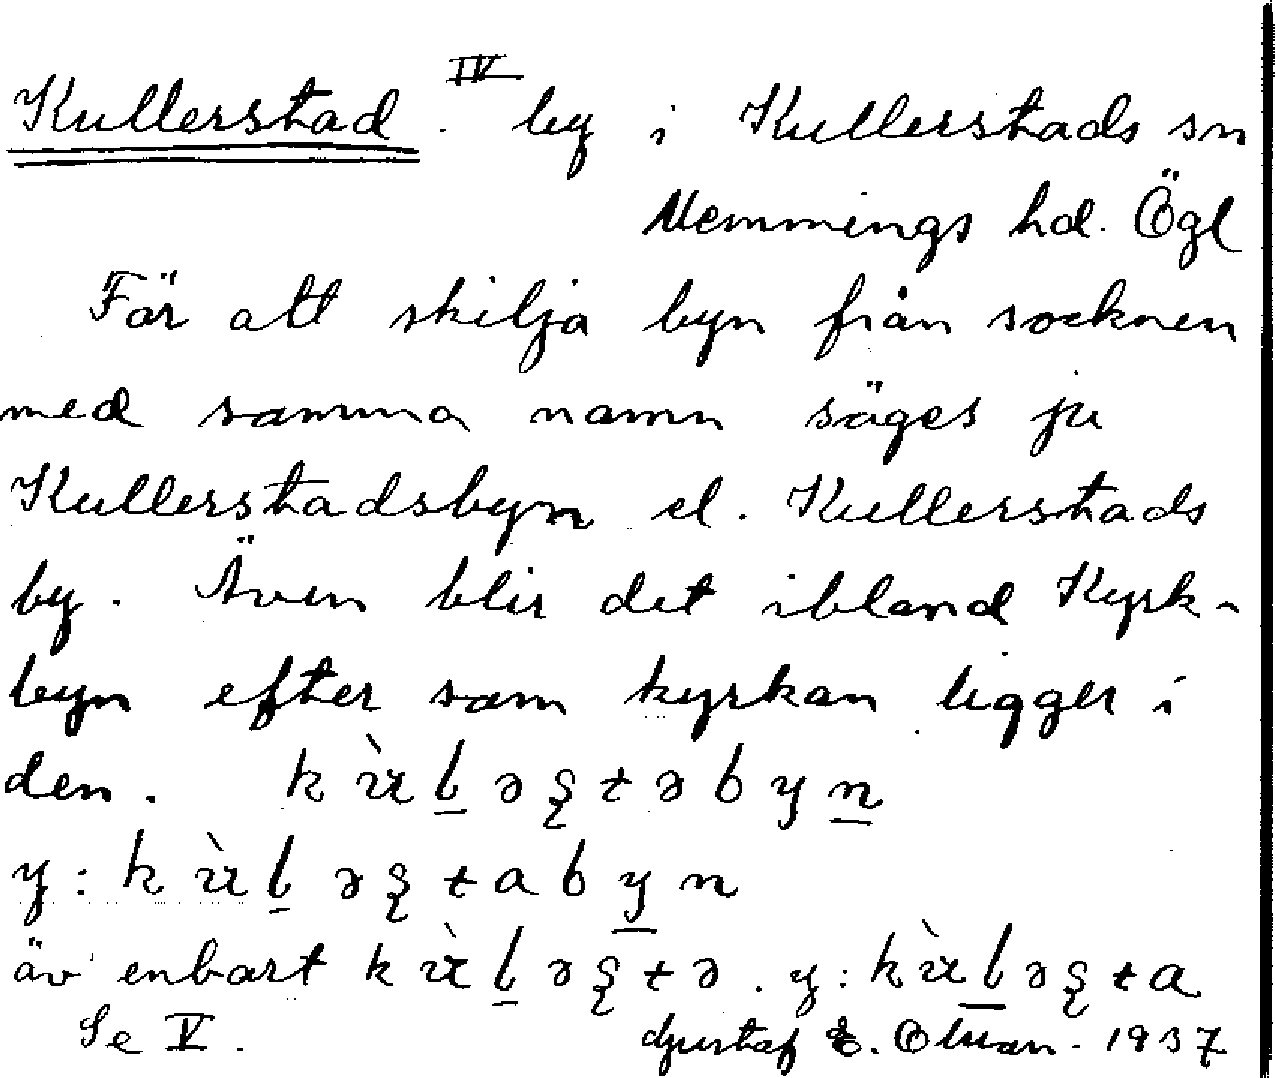 Kullerstad IV by i Kullerstads sn
Memmings hd. Ögl
För att skilja byn från socknen
med samma namn säges ju
Kullerstadsbyn el. Kullerstads
by. Även blir det ibland Kyrk-
byn efter som kyrkan ligger i
den.
y:
äv enbart y:
Se V. Gustaf E. 1937